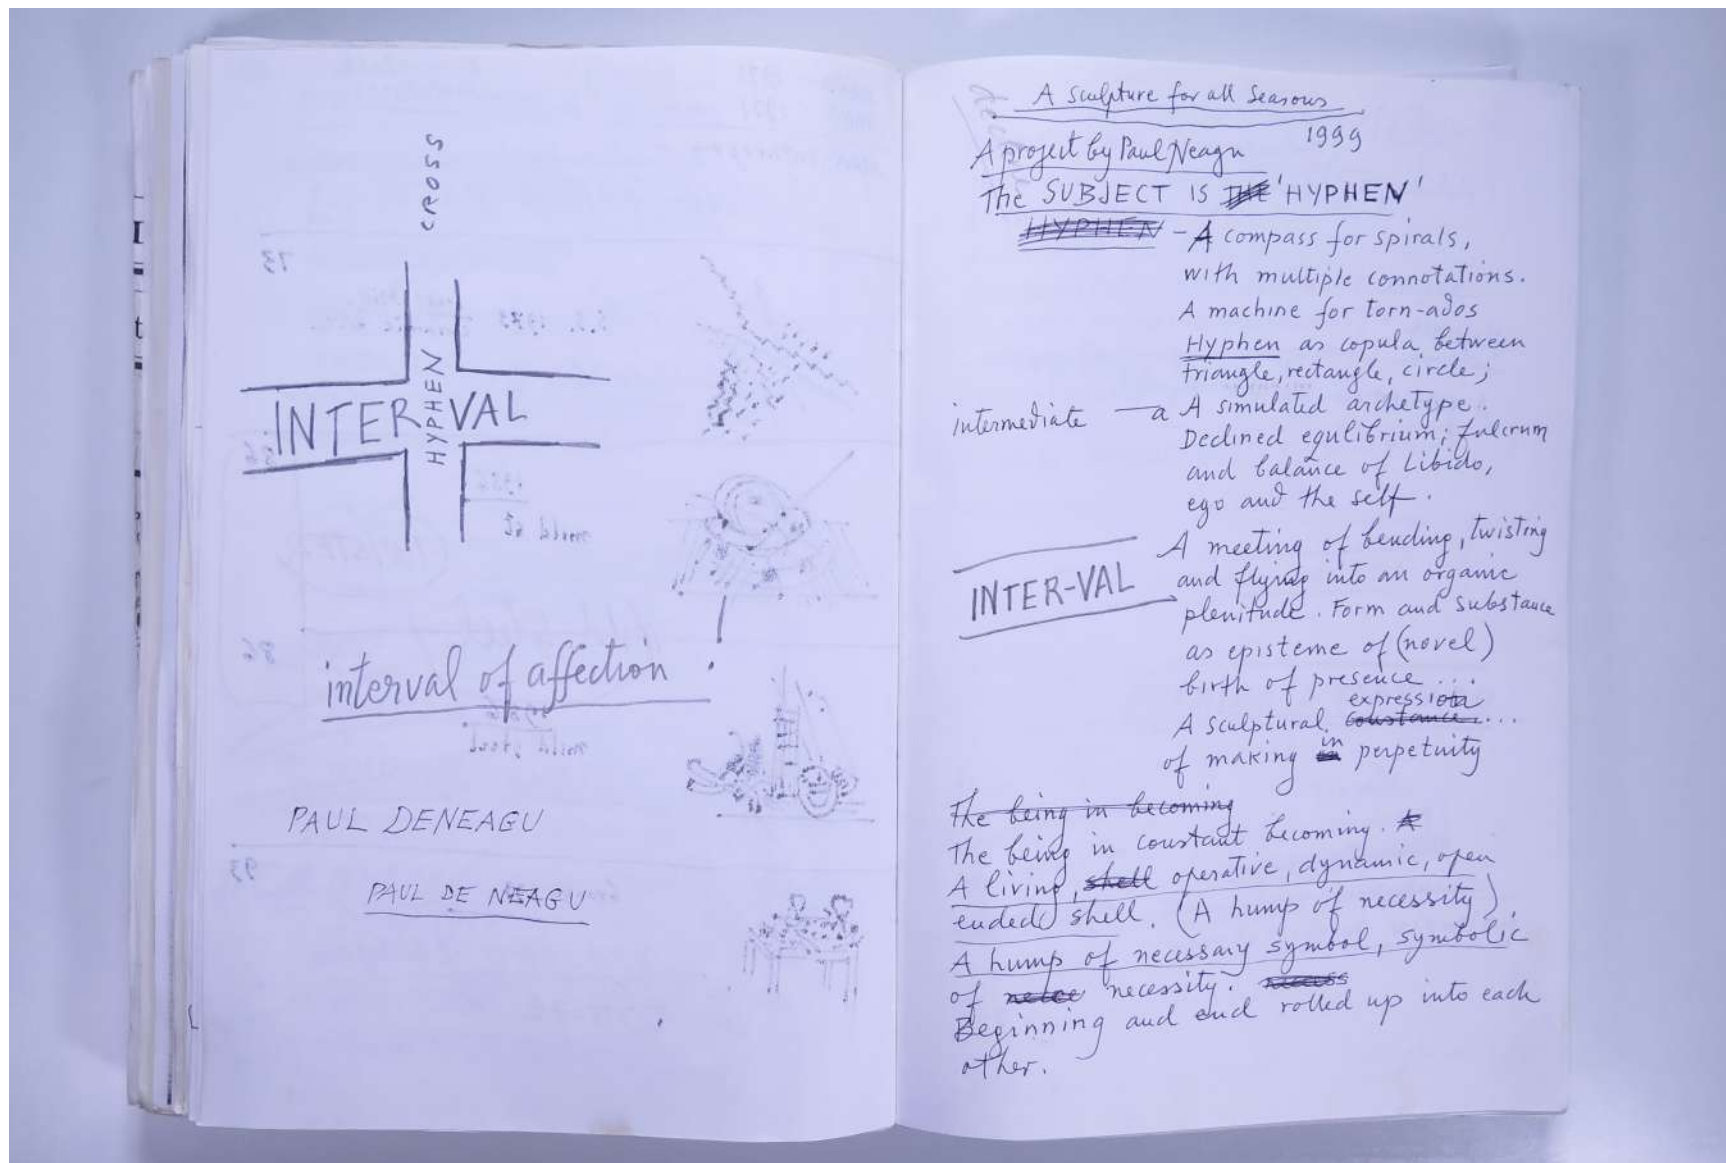 CROSS
HYPHEN
INTER-VAL
interval of affection
PAUL DENEAGU
PAUL DE NEAGU
A sculpture for all seasons
1999
A project by Paul Neagu
The SUBJECT IS THE 'HYPHEN'
HYPHEN - A compass for spirals,
with multiple connotations.
A machine for torn-ados
Hyphen as copula between
triangle, rectangle, circle;
intermediate — a A simulated archetype.
Declined equlibrium; fulcrum
and balance of Libido,
ego and the self.
A meeting of bending, twisting
INTER-VAL and flying into an organic
plenitude. Form and substance
as episteme of (novel)
birth of presence ...
expression
A sculptural constance....
of making in perpetuity
The being in becoming
The being in constant becoming. A
A living, shell operative, dynamic, open
ended shell. (A hump of necessity).
A hump of necessary symbol, symbolic
of nece necessity.
Beginning and end rolled up into each
other.